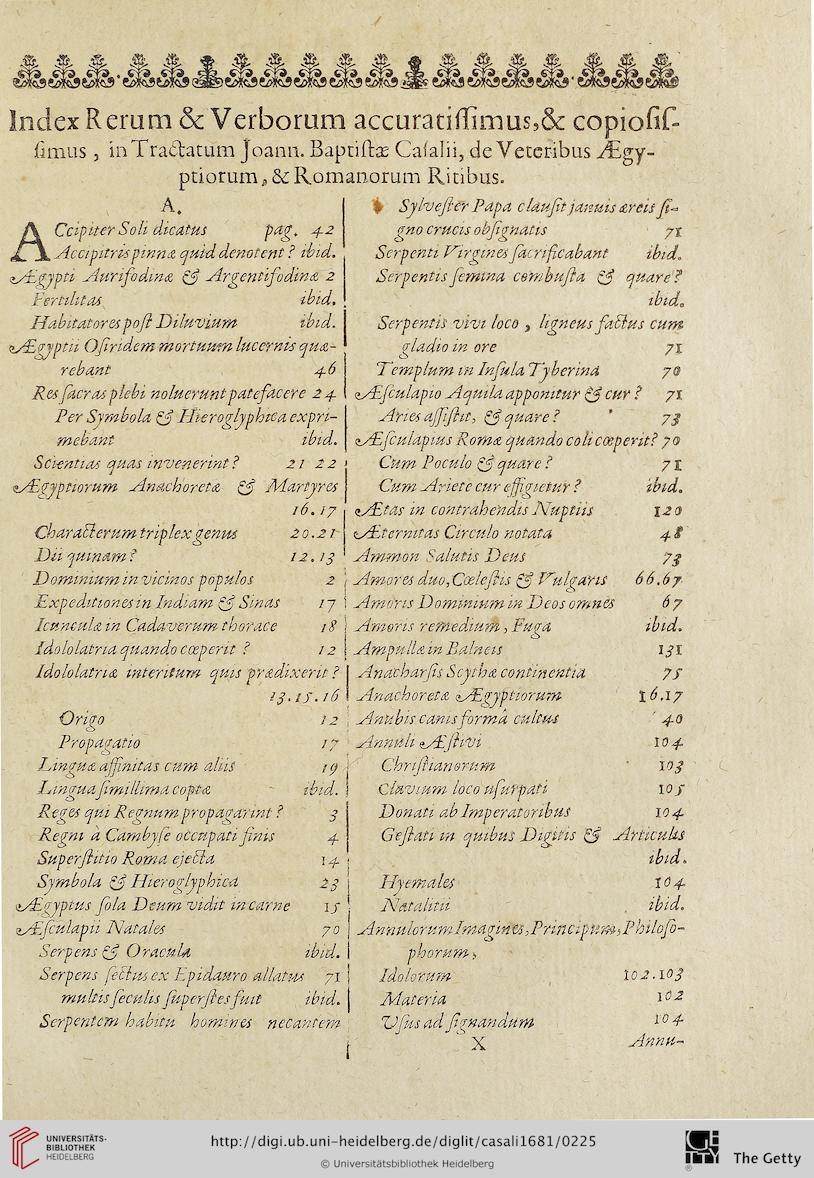 Index Rerum & Verborum accuratissimus, & copiosis-
simus, in Tractatum Joann. Baptistæ Casalii, de Veteribus Ægy-
ptiorum, & Romanorum Ritibus.
A.
ACcipiter Soli dicatus pag. 42
Accipitris pinnæ quid denotent? ibid.
Ægypti Aurifodinæ & Argentifodinæ 2
Fertilitas ibid.
Habitatores post Diluvium ibid.
Ægyptii Osiridem mortuum lucernis quæ-
rebant 46
Res sacras plebi noluerunt patefacere 24
Per Symbola & Hieroglyphica expri-
mebant ibid.
Scientias quas invenerint? 21 22
Ægyptiorum Anachoretæ & Martyres
16.17
Characterum triplex genus 20.21
Dii quinam? 12.13
Dominium in vicinos populos 2
Expeditiones in Indiam & Sinas 17
Icunculæ in Cadaverum thorace 18
Idololatria quando cœperit ? 12
Idololatriæ interitum quis prædixerit ?
13.15.16
Origo 12
Propagatio 17
Linguæ affinitas cum aliis 19
Lingua simillima coptæ ibid.
Reges qui Regnum propagarint ? 3
Regni à Cambyse occupati finis 4
Superstitio Roma ejecta 14
Symbola & Hieroglyphica 23
Ægyptus sola Deum vidit in carne 15
Æsculapii Natales 70
Serpens & Oracula ibid.
Serpens sectus ex Epidauro allatus 71
multis seculis superstes fuit ibid.
Serpentem habitu homines necantem
Sylvester Papa clausit januis æreis si-
gno crucis obsignatis 71
Serpenti Virgines sacrificabant ibid.
Serpentis semina combusta & quare?
ibid.
Serpentis vivi loco, ligneus factus cum
gladio in ore 71
Templum in Insula Tyberina 70
Æsculapio Aquila apponitur & cur ? 71
Aries assistit, & quare ? 73
Æsculapius Romæ quando coli cœperit? 70
Cum Poculo & quare ? 71
Cum Ariete cur effigietur ? ibid.
Ætas in contrahendis Nuptiis 120
Æternitas Circulo notata 48
Ammon Salutis Deus 73
Amores duo, Cœlestis & Vulgaris 66.67
Amoris Dominium in Deos omnes 67
Amoris remedium, Fuga ibid.
Ampullæ in Balneis 131
Anacharsis Scythæ continentia 75
Anachoretæ Ægyptiorum 16.17
Anubis canis formâ cultus 40
Annuli Æstivi 104
Christianorum 103
Clavium loco usurpati 105
Donati ab Imperatoribus 104
Gestati in quibus Digitis & Articulis
ibid.
Hyemales 104
Natalitii ibid.
Annulorum Imagines, Principum, Philoso-
phorum,
Idolorum 102.103
Materia 102
Usus ad signandum 104
X Annu-
UNIVERSITÄTS-
BIBLIOTHEK
HEIDELBERG
http://digi.ub.uni-heidelberg.de/diglit/casali1681/0225
© Universitätsbibliothek Heidelberg
GETTY
The Getty